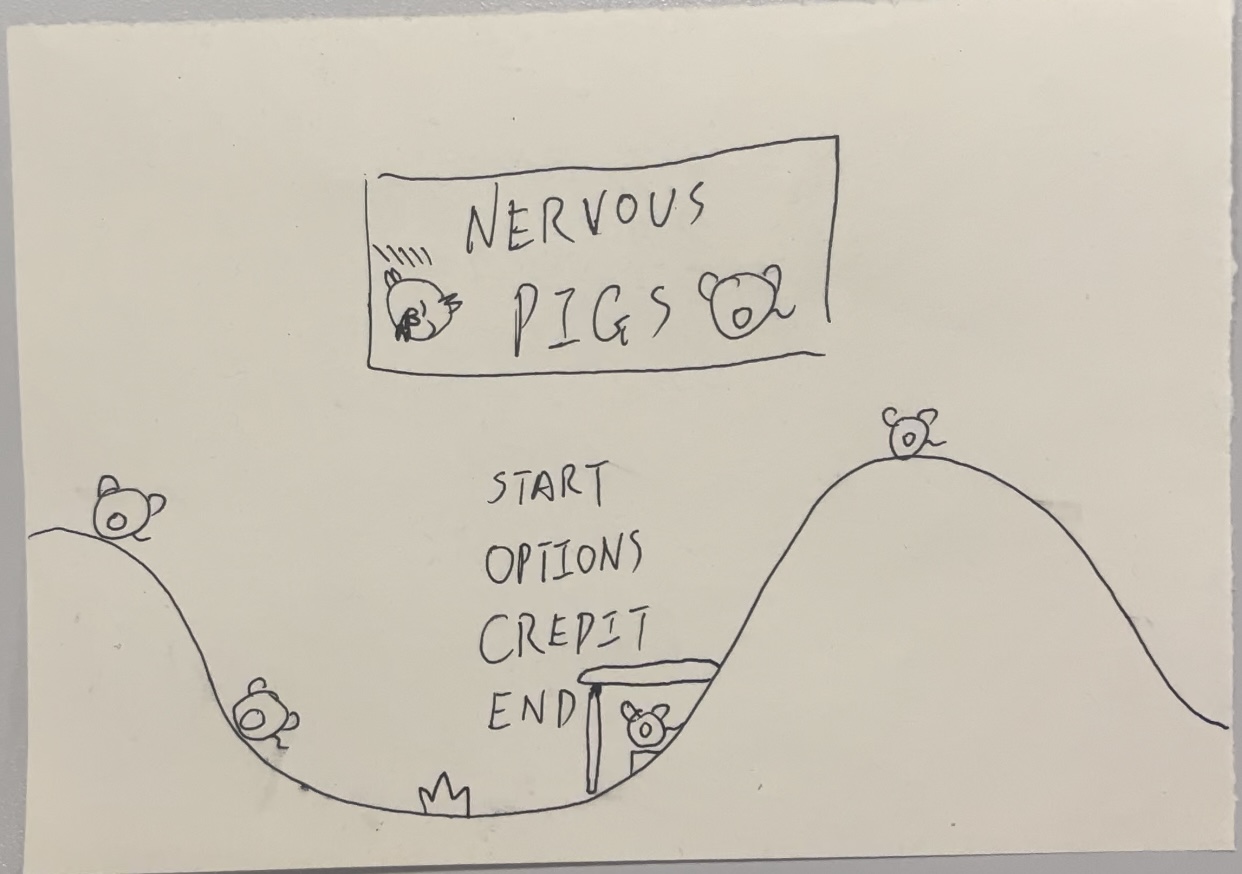 NERVOUS
PIGS
START
OPTIONS
CREDIT
END